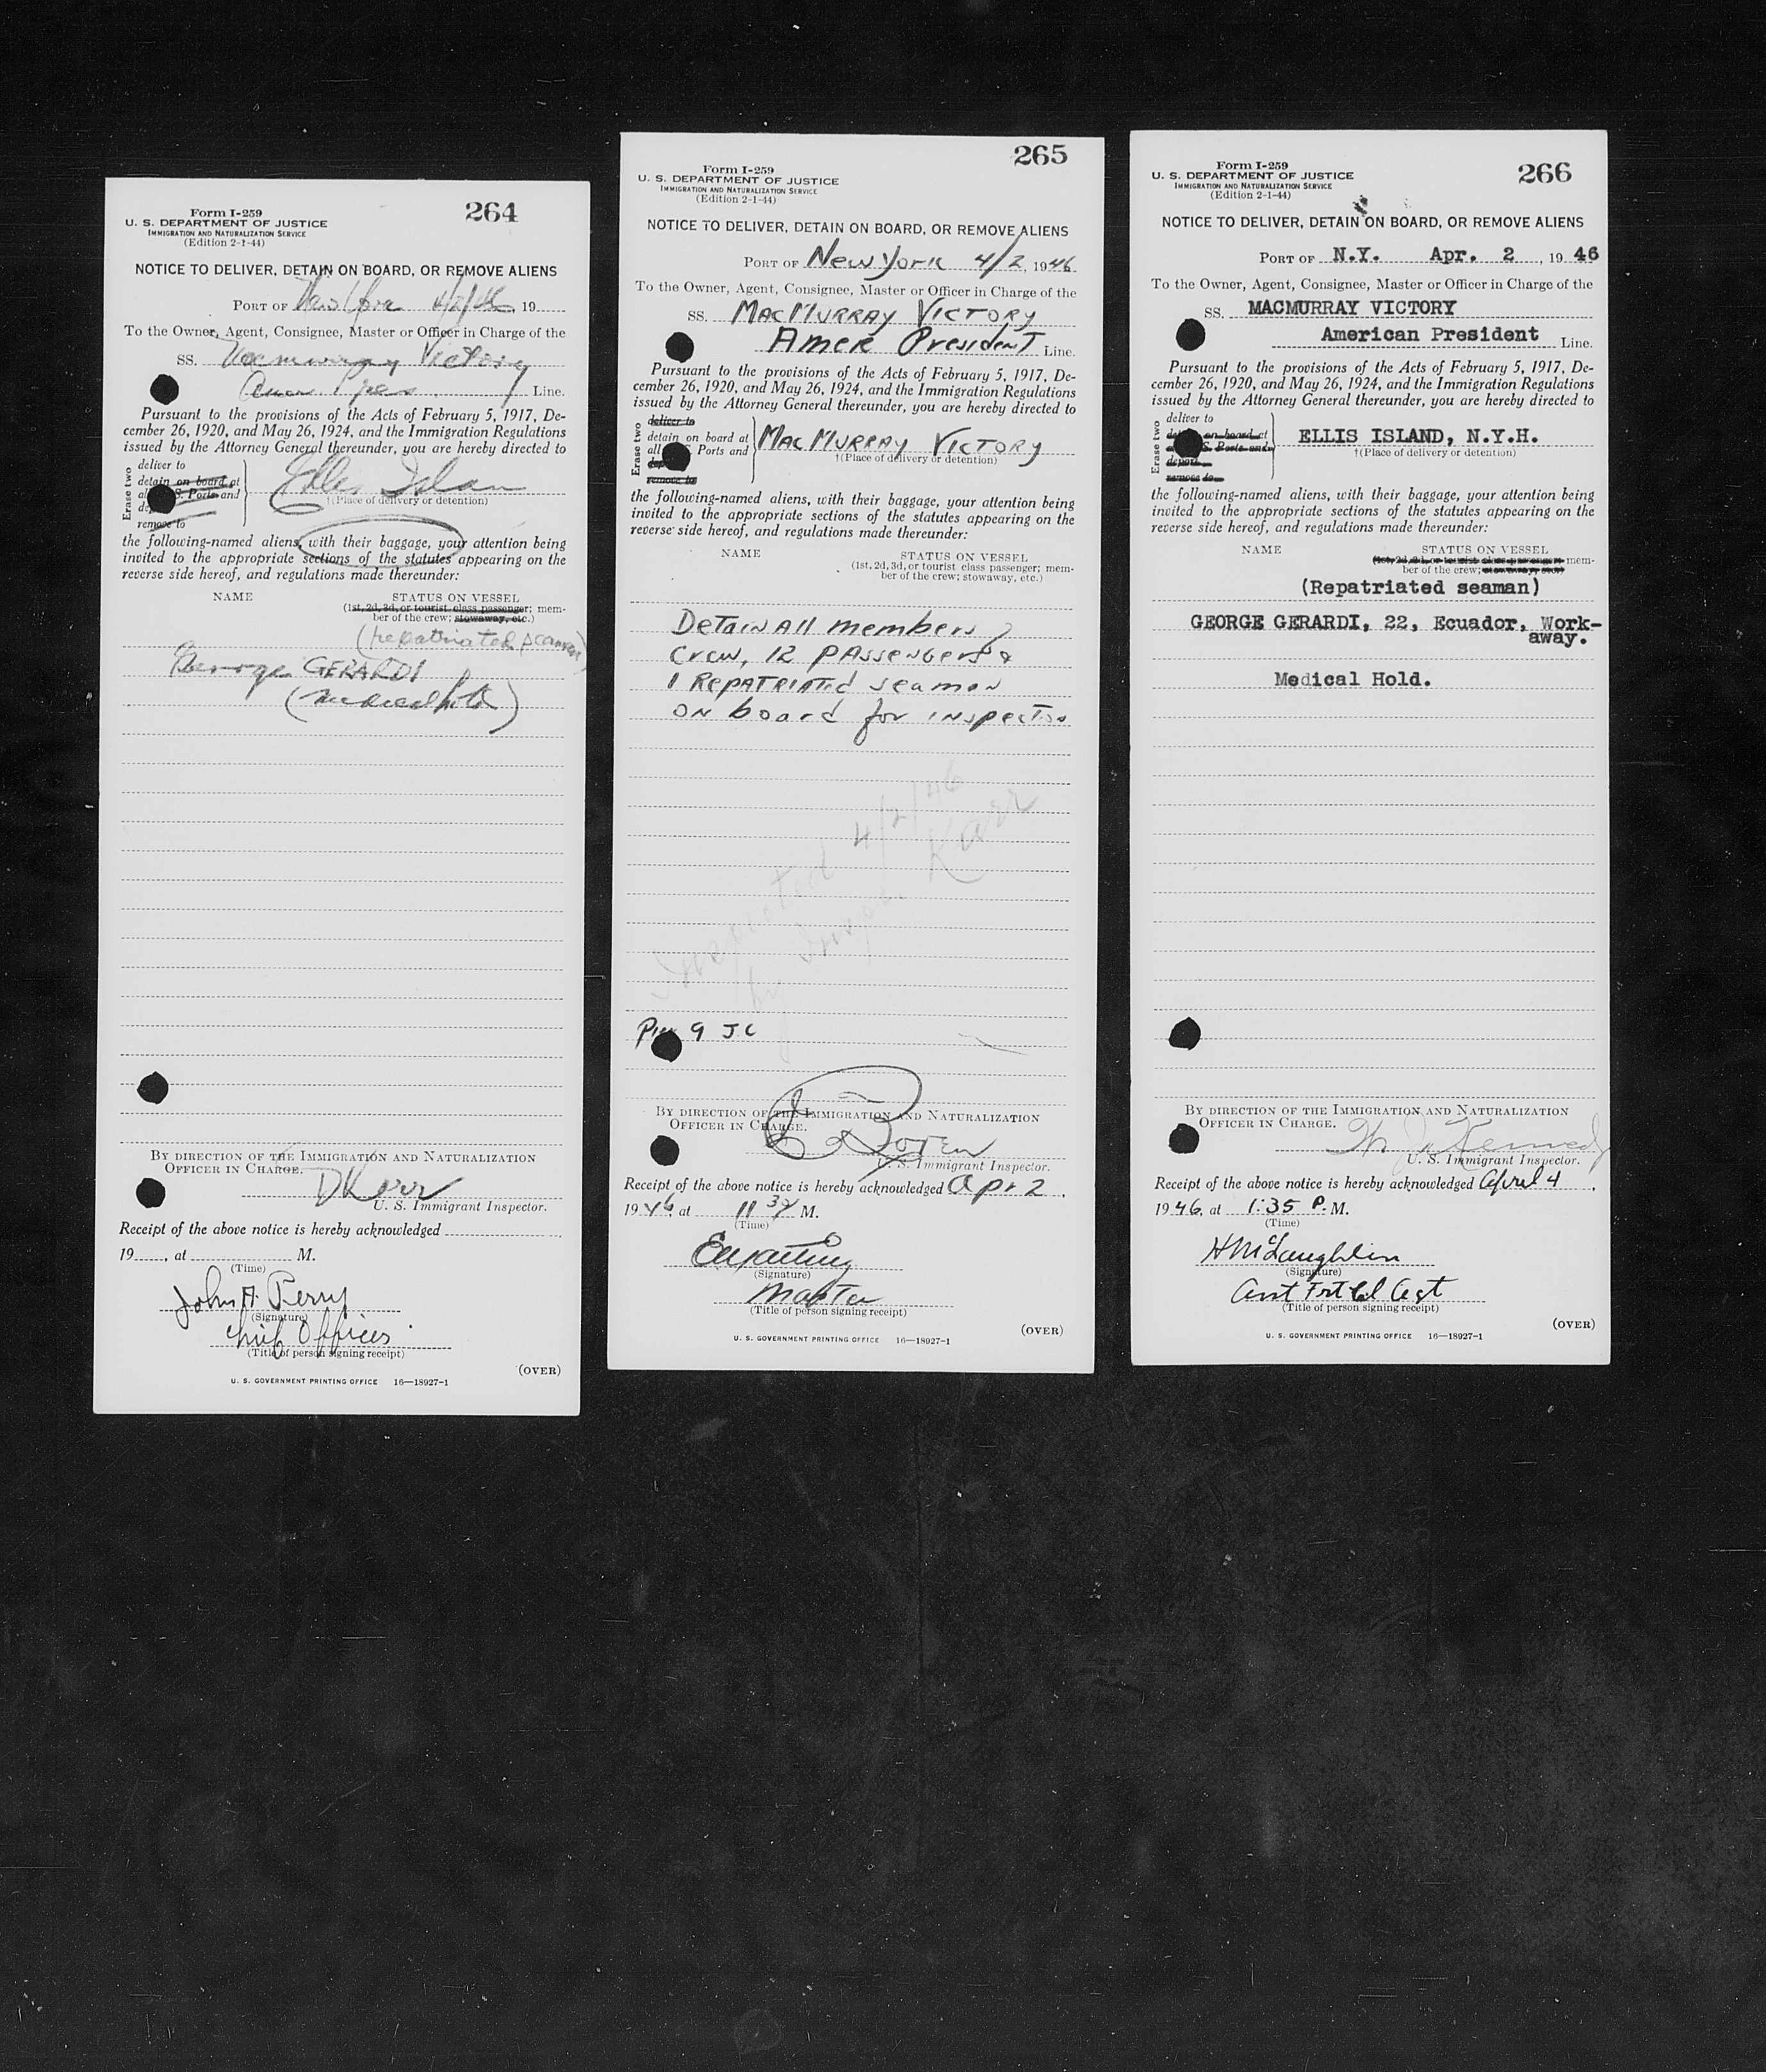 264
Form I-259
U. S. DEPARTMENT OF JUSTICE
IMMIGRATION AND NATURALIZATION SERVICE
(Edition 2-1-44)
NOTICE TO DELIVER, DETAIN ON BOARD, OR REMOVE ALIENS
PORT OF New York 4/2/46, 19
To the Owner, Agent, Consignee, Master or Officer in Charge of the
SS. Macmurray Victory
Amer Pres. Line.
Pursuant to the provisions of the Acts of February 5, 1917, De-
cember 26, 1920, and May 26, 1924, and the Immigration Regulations
issued by the Attorney General thereunder, you are hereby directed to
Erase two
deliver to
detain on board at
S. Ports and
remove to
Ellis Islan
†(Place of delivery or detention)
the following-named aliens, with their baggage, your attention being
invited to the appropriate sections of the statutes appearing on the
reverse side hereof, and regulations made thereunder:
NAME STATUS ON VESSEL
(1st, 2d, 3d, or tourist class passenger; mem-
ber of the crew; stowaway, etc.)
(repatriated seaman)
George GERARDI
(medical hold)
BY DIRECTION OF THE IMMIGRATION AND NATURALIZATION
OFFICER IN CHARGE.
D Karr
U. S. Immigrant Inspector.
Receipt of the above notice is hereby acknowledged
19, at M.
(Time)
John A. Perry
(Signature)
Chief Officer
(Title of person signing receipt)
(OVER)
U. S. GOVERNMENT PRINTING OFFICE 16—18927-1
265
Form I-259
U. S. DEPARTMENT OF JUSTICE
IMMIGRATION AND NATURALIZATION SERVICE
(Edition 2-1-44)
NOTICE TO DELIVER, DETAIN ON BOARD, OR REMOVE ALIENS
PORT OF New York 4/2, 1946
To the Owner, Agent, Consignee, Master or Officer in Charge of the
SS. MacMURRAY VICTORY
AMER PresidenT Line.
Pursuant to the provisions of the Acts of February 5, 1917, De-
cember 26, 1920, and May 26, 1924, and the Immigration Regulations
issued by the Attorney General thereunder, you are hereby directed to
Erase two
deliver to
detain on board at
all Ports and
remove to
MacMURRAY VICTORY
†(Place of delivery or detention)
the following-named aliens, with their baggage, your attention being
invited to the appropriate sections of the statutes appearing on the
reverse side hereof, and regulations made thereunder:
NAME STATUS ON VESSEL
(1st, 2d, 3d, or tourist class passenger; mem-
ber of the crew; stowaway, etc.)
DeTain All members
Crew, 12 PAssengers &
1 RepATRIATed seaman
ON board for inspection
Inspected 4/2/46
by Inspr. Karr
Pier 9 JC
BY DIRECTION OF THE IMMIGRATION AND NATURALIZATION
OFFICER IN CHARGE.
U. S. Immigrant Inspector.
Receipt of the above notice is hereby acknowledged Apr 2,
1946, at 11 M.
(Time)
(Signature)
Master
(Title of person signing receipt)
(OVER)
U. S. GOVERNMENT PRINTING OFFICE 16—18927-1
266
Form I-259
U. S. DEPARTMENT OF JUSTICE
IMMIGRATION AND NATURALIZATION SERVICE
(Edition 2-1-44)
NOTICE TO DELIVER, DETAIN ON BOARD, OR REMOVE ALIENS
PORT OF N.Y. Apr. 2, 1946
To the Owner, Agent, Consignee, Master or Officer in Charge of the
SS. MACMURRAY VICTORY
American President Line.
Pursuant to the provisions of the Acts of February 5, 1917, De-
cember 26, 1920, and May 26, 1924, and the Immigration Regulations
issued by the Attorney General thereunder, you are hereby directed to
Erase two
deliver to
on board at
S. Ports and
deport
remove to
ELLIS ISLAND, N.Y.H.
†(Place of delivery or detention)
the following-named aliens, with their baggage, your attention being
invited to the appropriate sections of the statutes appearing on the
reverse side hereof, and regulations made thereunder:
NAME STATUS ON VESSEL
(1st, 2d, 3d, or tourist class passenger; mem-
ber of the crew; stowaway, etc.)
(Repatriated seaman)
GEORGE GERARDI, 22, Ecuador, Work-
away.
Medical Hold.
BY DIRECTION OF THE IMMIGRATION AND NATURALIZATION
OFFICER IN CHARGE.
Kennedy
U. S. Immigrant Inspector.
Receipt of the above notice is hereby acknowledged April 4,
1946, at 1:35 P. M.
(Time)
H McLaughlin
(Signature)
Asst Frt Cl Agt
(Title of person signing receipt)
(OVER)
U. S. GOVERNMENT PRINTING OFFICE 16—18927-1